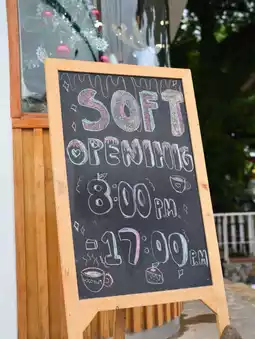 SOFT
OPENING
8:00 P.M.
17:00 P.M